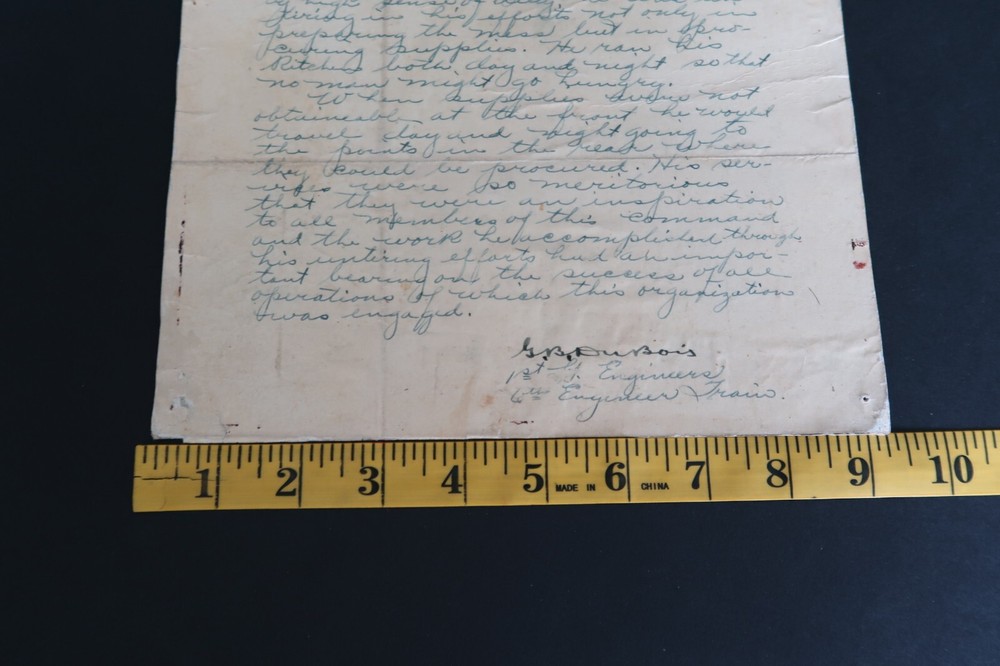 high sense of duty
in his efforts not only in
preparing the mess but in pro-
curing supplies. He ran his
Kitchen both day and night so that
no man might go hungry.
When supplies were not
obtaineable at the front he would
travel day and night going to
the points in the rear where
they could be procured. His ser-
vices were so meritorious
that they were an inspiration
to all members of this command
and the work he accomplished through
his untiring efforts had an impor-
tant bearing on the success of all
operations of which this organization
was engaged.
G.B. DuBois
1st Engineers
6th Engineer Train.
1 2 3 4 5 MADE IN 6 CHINA 7 8 9 10